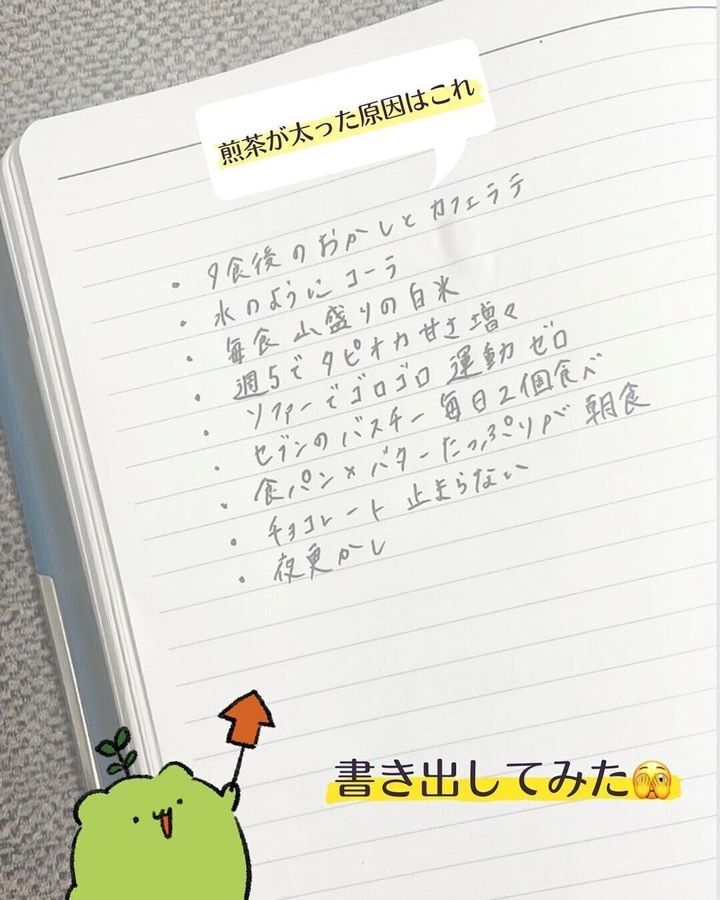 煎茶が太った原因はこれ
・夕食後のおかしとカフェラテ
・水のようにコーラ
・毎食山盛りの白米
・週5でタピオカ甘さ増々
・ソファーでゴロゴロ運動ゼロ
・セブンのバスチー毎日2個食べ
・食パン×バターたっぷりが朝食
・チョコレート止まらない
・夜更かし
書き出してみた🫣